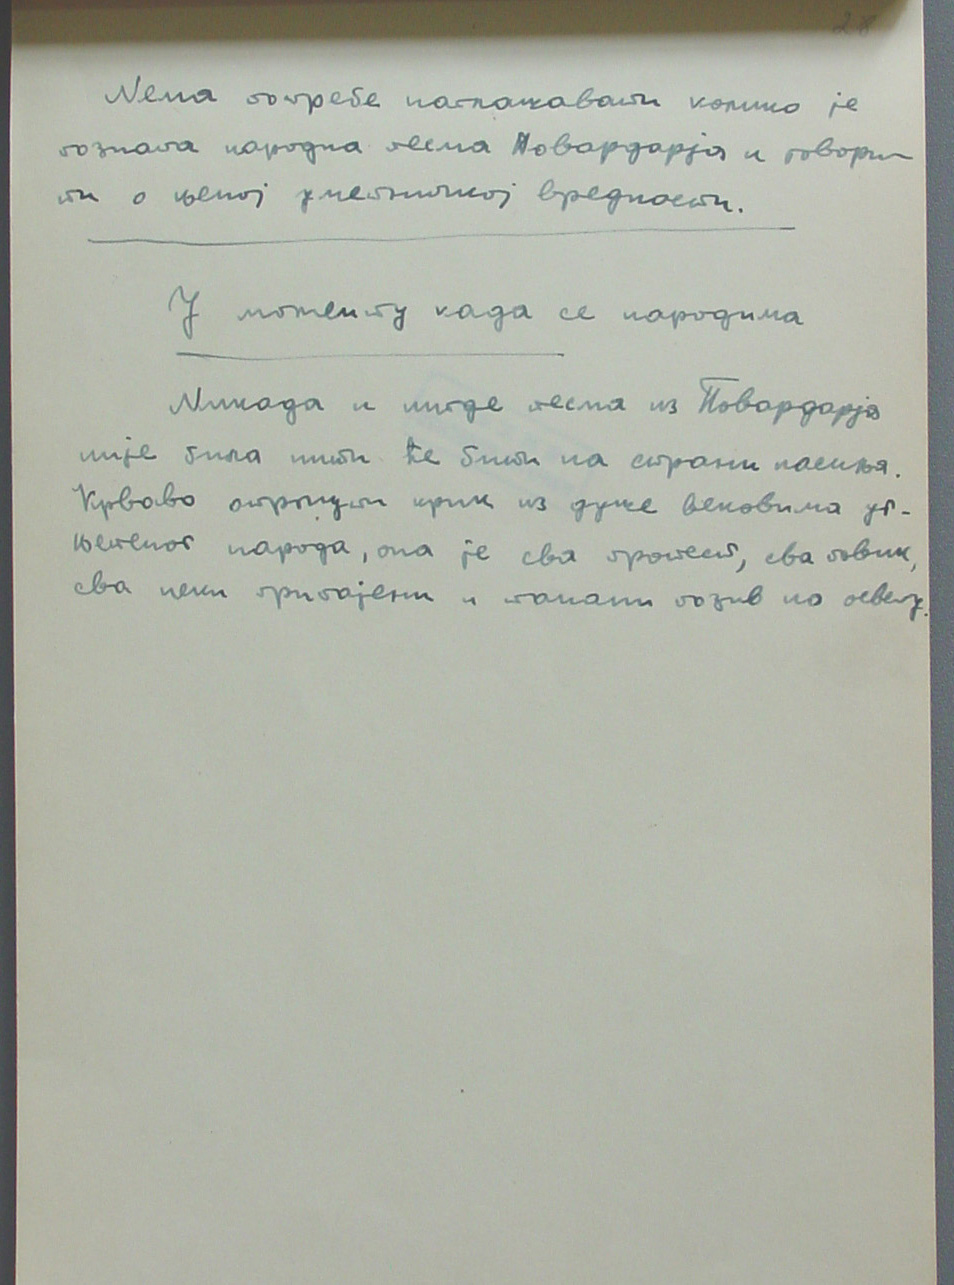 28
Nema потребе наглашавати колико је
позната народна песма Повардарја и говори-
ти о њеној уметничкој вредности.
У моменту када се народима
Никада и нигде песма из Повардарја
није била нити ће бити на страни насиља.
Крваво отргнути крик из душе вековима уг-
њетеног народа, она је сва протест, сва повик,
сва неки притајени и лагани позив на освету.